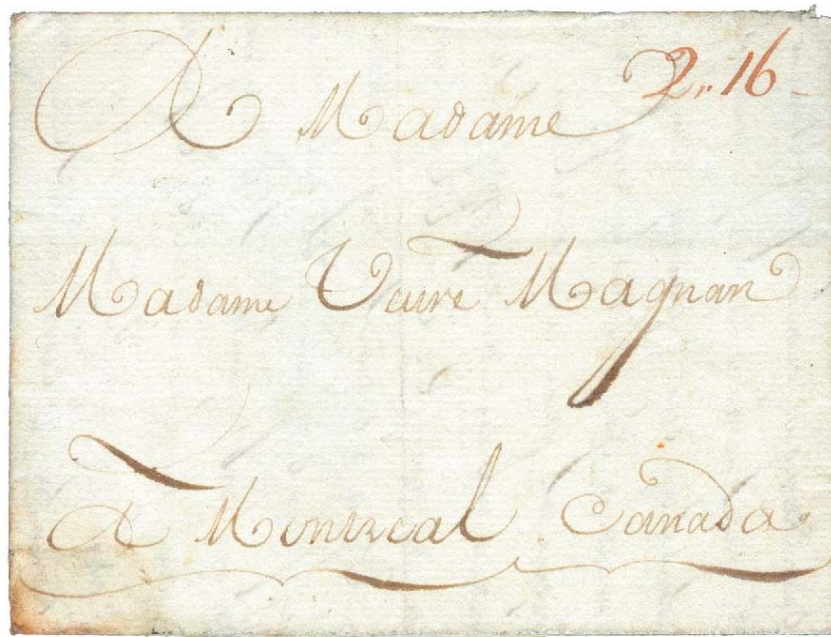 2,, 16
A Madame
Madame Veuve Magnan
A Montreal Canada